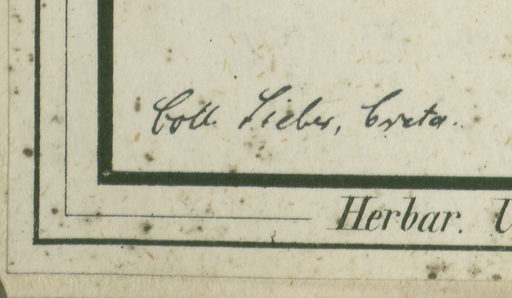 Coll. Sieber, Creta.
Herbar. U